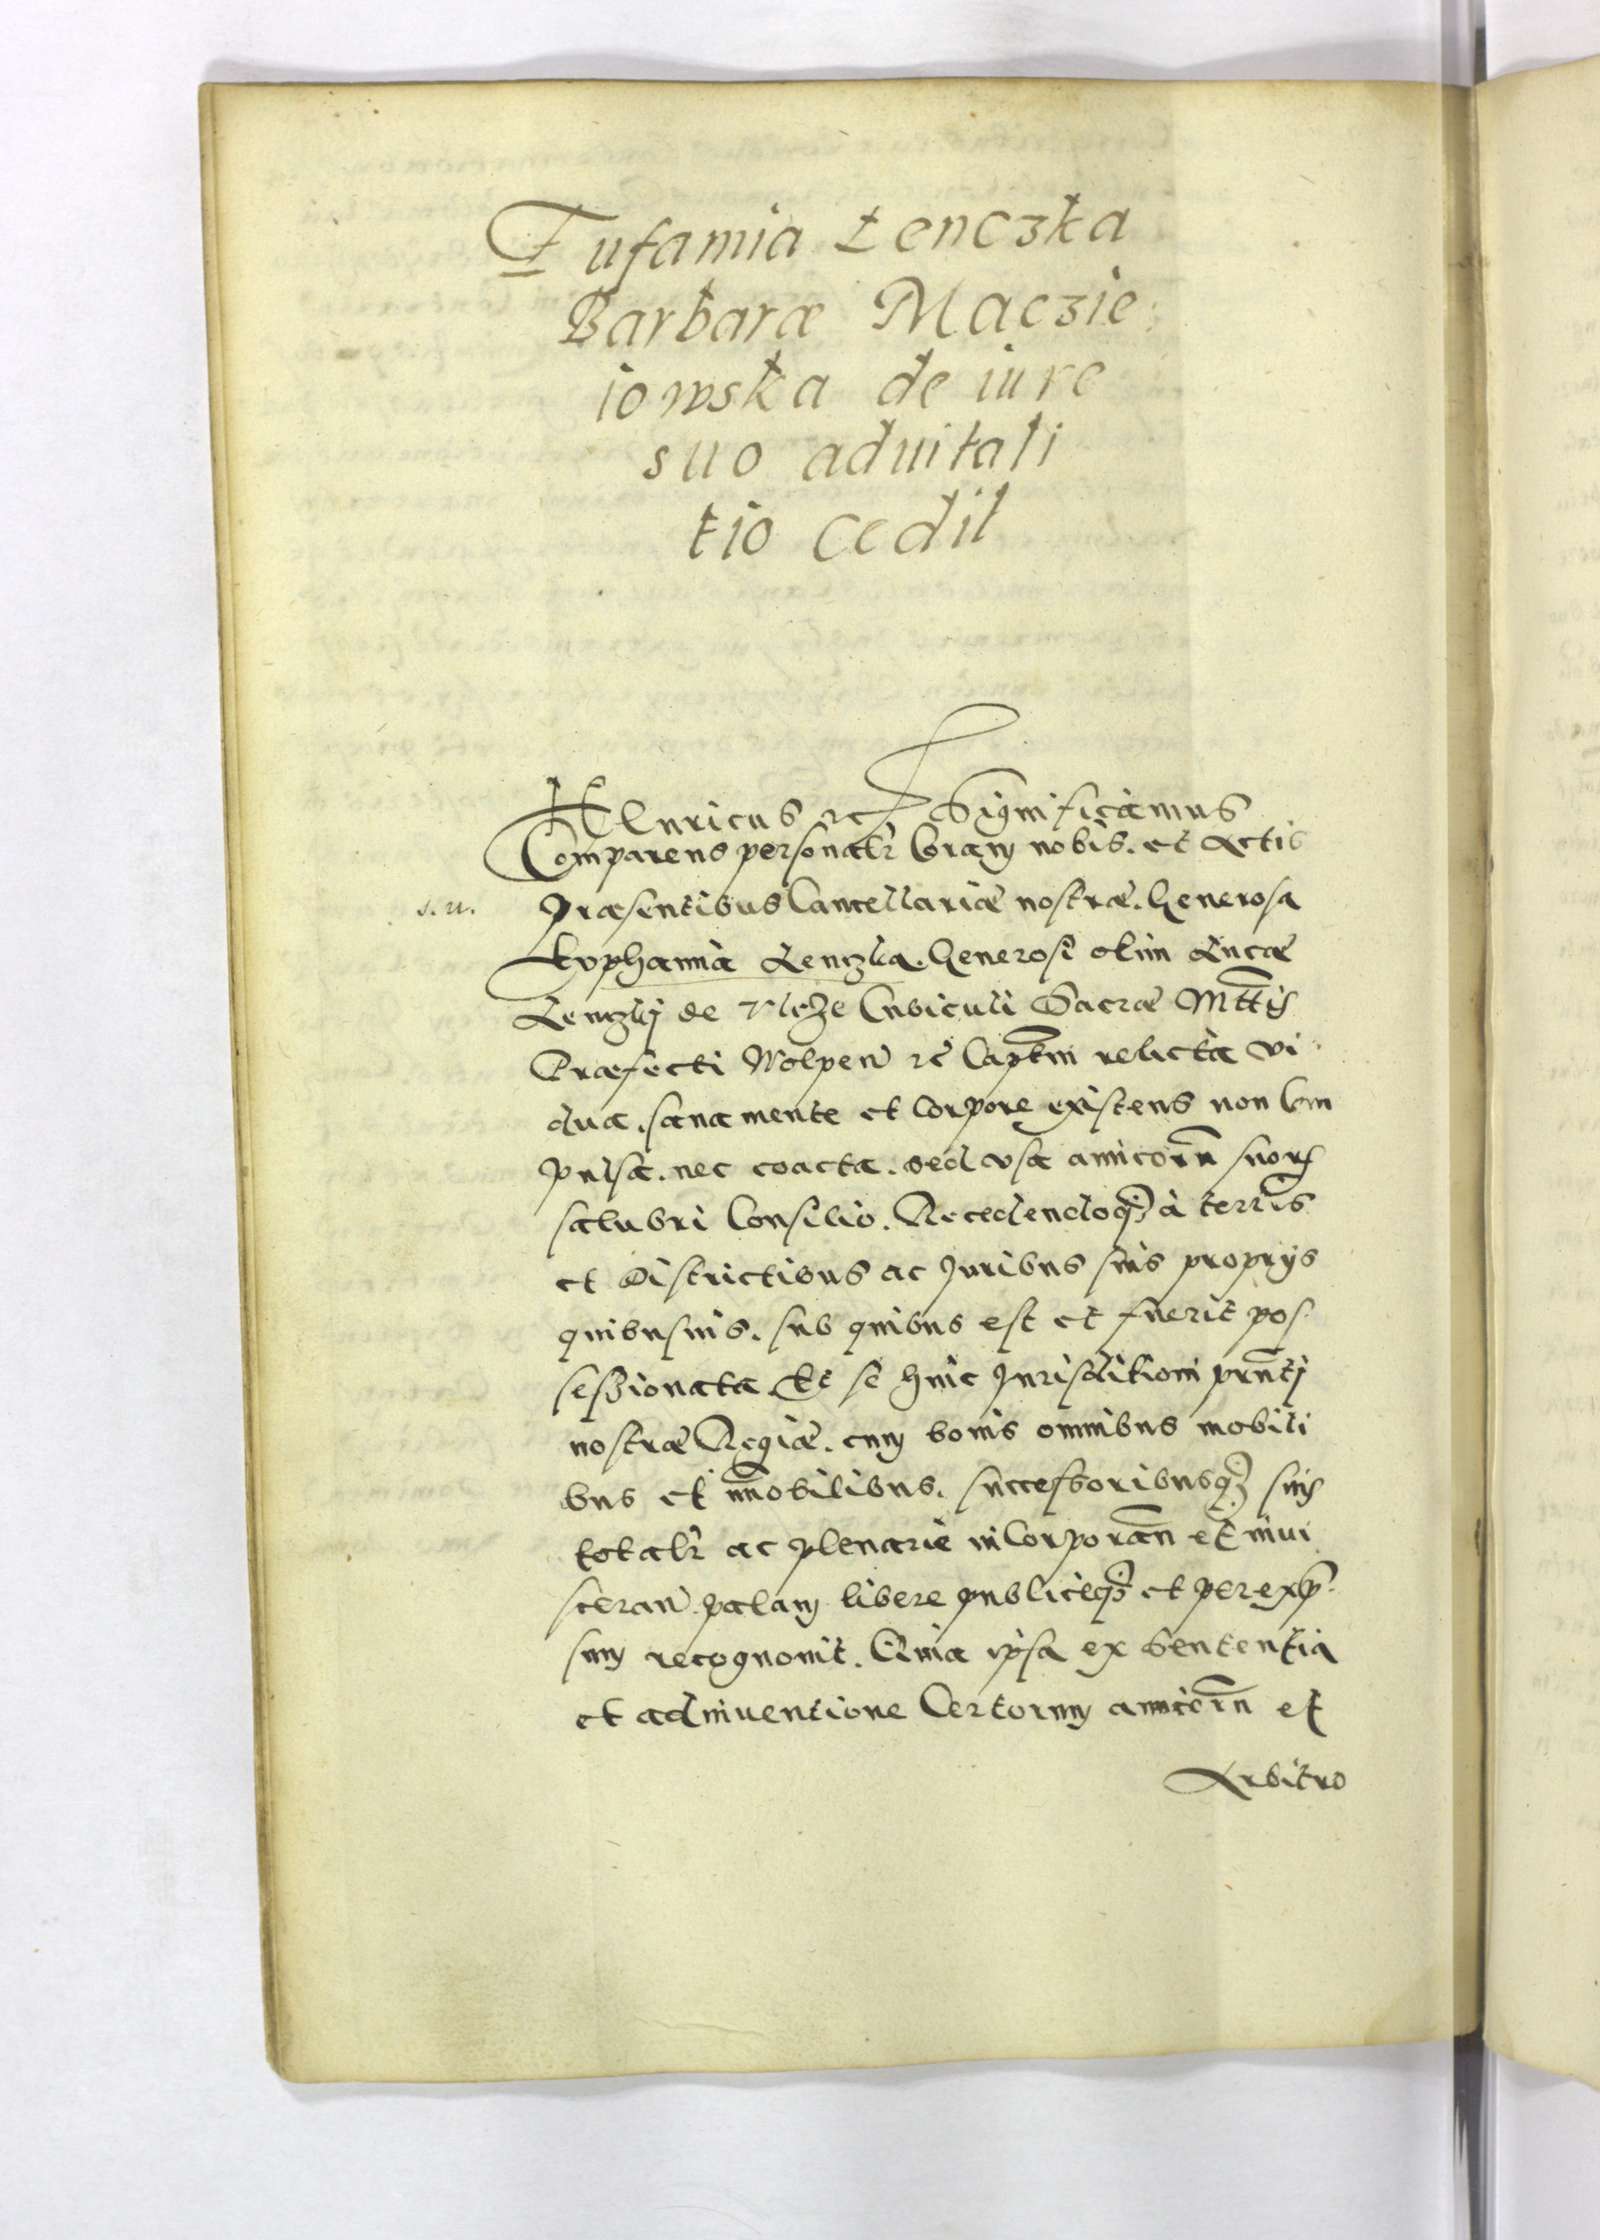 Eufamia Łenczka
Barbaræ Maczie
iowska de iure
suo aduitali
tio cedit
Henricus etc Significamus
Comparens personalr̃ Coram nobis. et Actis
s. u.
præsentibus Cancellariæ nostræ. Generosa
Euphamia Lenczka. Generosi olim Lucæ
Lenczkij de Cubiculi Sacræ Mttis
Præfecti Wolpen̄ etc̄ Captm relicta vi
dua. sana mente et Corpore existens non Com
pulsa. nec coacta. sed vsa amicorū suorꝫ
salubri Consilio. Recedendoqꝫ à terris
et Districtibus ac Juribus suis proprijs
quibusuis. sub quibus est et fuerit pos
sessionata Et se huic Jurisditioni pñti
nostræ Regiæ. cum bonis omnibus mobili
bus et im̄obilibus. successoribusqꝫ suis
totalr̃ ac plenarie inCorporan̄ et inui
sceran̄. palam libere publiceqꝫ et per exp
sum recognouit. Quia ipsa ex Sententia
et adinuentione Certorum amicorū et
Arbitro